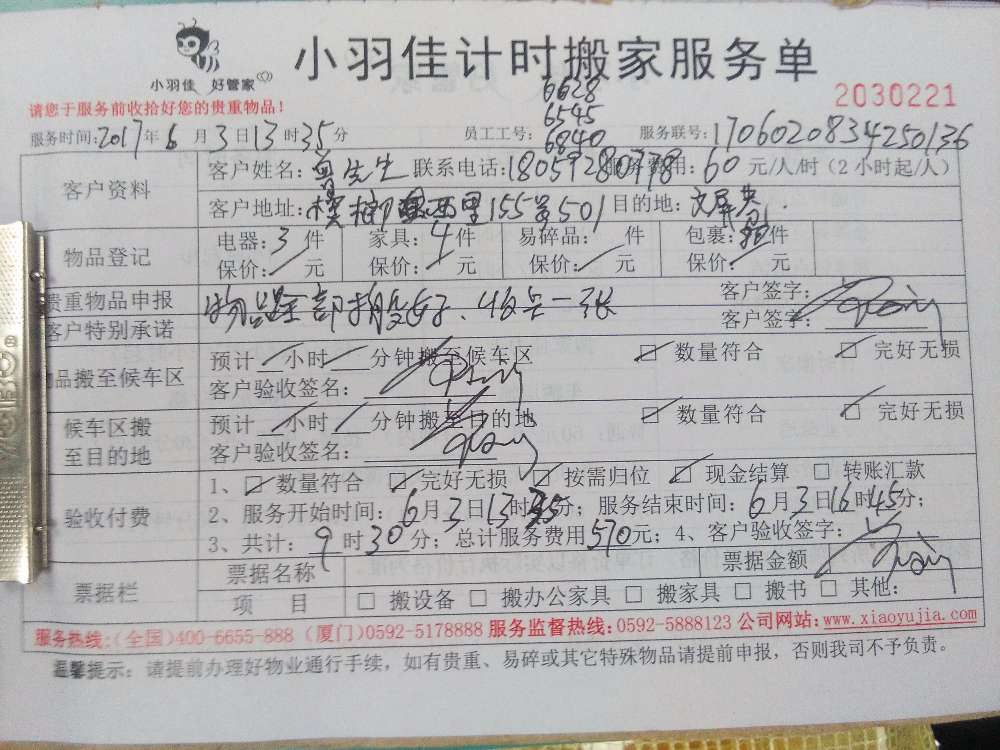 小羽佳 好管家
小羽佳计时搬家服务单
请您于服务前收拾好您的贵重物品！
2030221
6628
6545
6840
服务时间:2017年6月3日13时35分 员工工号: 服务联号:1706020834250136
客户资料
客户姓名:曾先生 联系电话:18059280778 服务费用:60元/人/时（2小时起/人）
客户地址: 西里155号501 目的地:文屏
物品登记
电器:3件 家具:4件 易碎品: 件 包裹: 件
保价: 元 保价: 元 保价: 元 保价: 元
贵重物品申报 客户签字:
客户特别承诺 客户签字:
物品全部搬好、收兵一张
物品搬至候车区
预计 小时 分钟搬至候车区 ☑ 数量符合 ☑ 完好无损
客户验收签名:
候车区搬至目的地
预计 小时 分钟搬至目的地 ☑ 数量符合 ☑ 完好无损
客户验收签名:
验收付费
1、☑ 数量符合 ☑ 完好无损 ☑ 按需归位 ☑ 现金结算 ☐ 转账汇款
2、服务开始时间: 6月3日13时35分; 服务结束时间: 6月3日16时45分;
3、共计: 9时30分; 总计服务费用570元; 4、客户验收签字:
票据栏
票据名称 票据金额
项 目 ☐ 搬设备 ☐ 搬办公家具 ☐ 搬家具 ☐ 搬书 ☐ 其他:
服务热线:(全国)400-6655-888 (厦门)0592-5178888 服务监督热线:0592-5888123 公司网站:www.xiaoyujia.com
温馨提示: 请提前办理好物业通行手续，如有贵重、易碎或其它特殊物品请提前申报，否则我司不予负责。